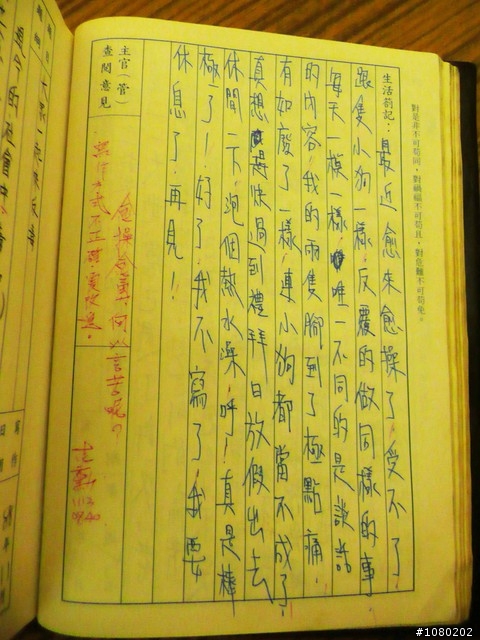 對是非不可苟同,對禍福不可苟且,對危難不可苟免。
生活箚記:最近愈來愈操了!受不了!
跟隻小狗一樣,反覆的做同樣的事,
每天一模一樣,唯一不同的是談話
的內容,我的兩隻腳到了極點痛,
有如廢了一樣,連小狗都當不成了,
真想趕快過到禮拜日放假出去
休閒一下,泡個熱水澡,呼!真是棒
極了!好了!我不寫了!我要
休息了!再見!
主官(管)
查閱意見
何以言苦呢?
1112
0940
#1080202